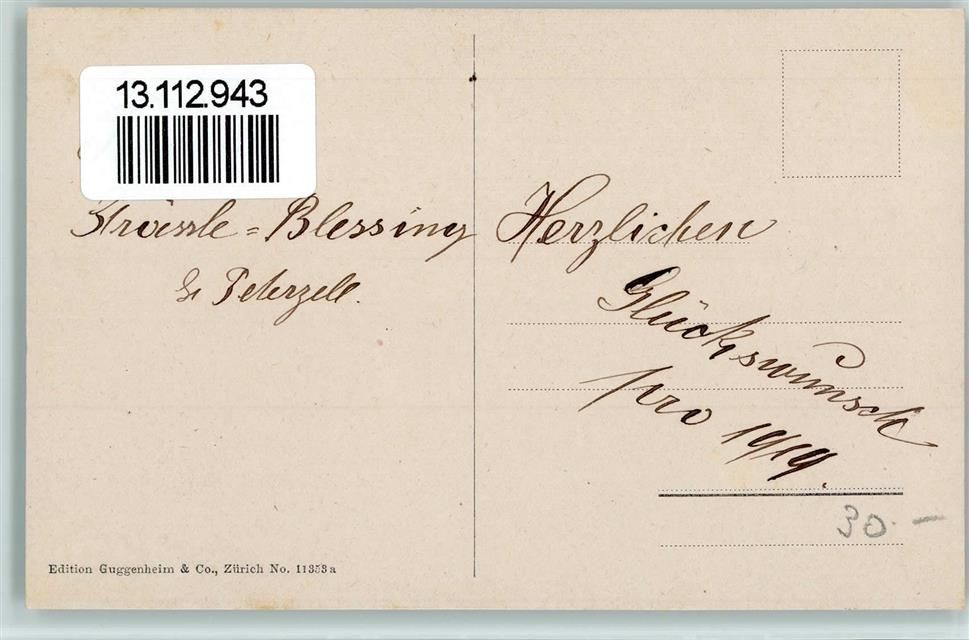 13.112.943
Strässle = Blessing
St Peterzell.
Herzlichen
Glückswunsch
pro 1919.
30.-
Edition Guggenheim & Co., Zürich No. 11353a